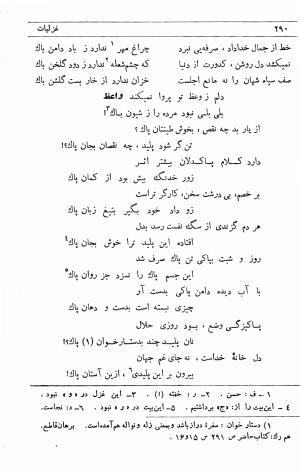 ۲۹۰
غزلیات
خط از جمال خداداد ، صرفه‌یی نبرد چراغ مهر ندارد ز باد دامن باك
نمیکشد دل روشن ، کدورت از دنیا که چشم شعله ندارد ز دود گلخن باك
صف سپاه شهان را نه مانع اجلست خزان ندارد از خار بست گلشن باك
دلم ز وعظ تو پروا نمیکند واعظ
بلی نبود مرده را ز شیون باك
از یار بد چه نقص ، بخوش طینتان پاك؟
تن گر شود پلید ، چه نقصان بجان پاك؟!
دارد کلام پاکدلان بیشتر اثر
زور خدنگ بیش بود از کمان پاك
بر خصم، بی درشت سخن، کارگر تراست
زو داد خود بگیر بتیغ زبان پاك
هر دم گزندی از سگ نفست رسد بدل
افتاده این پلید ترا خوش بجان پاك۴
روز و شبت بپاکی تن پاك صرف شد
این جسم پاك را نسزد جز روان پاك۵
با آب دیده دامن پاکی بدست آر
چیزی نبسته است بدست و دهان پاك
پاکیزگی وضع ، بود روزی حلال
نان پلید چند بدستارخوان (۱) پاك؟!
دل خانهٔ خداست ، نه جای غم جهان
بیرون بر این پلیدی۶، ازین آستان پاك!
۱ ـ ف : حسن . ۲ ـ ر : خفته (!) . ۳ ـ این غزل در «ر» نبود .
۴ ـ این بیت را از: «ج» برداشتیم . ۵ ـ این بیت در «ر» نبود . ۶ ـ د: نجاست.
(۱) دستار خوان : سفرهٔ درازباشد وبمعنی زله و نواله هم آمده است. برهان قاطع.
هم رك: کتاب حاضر ص ۲۹۱ س ۱۵و۱۶